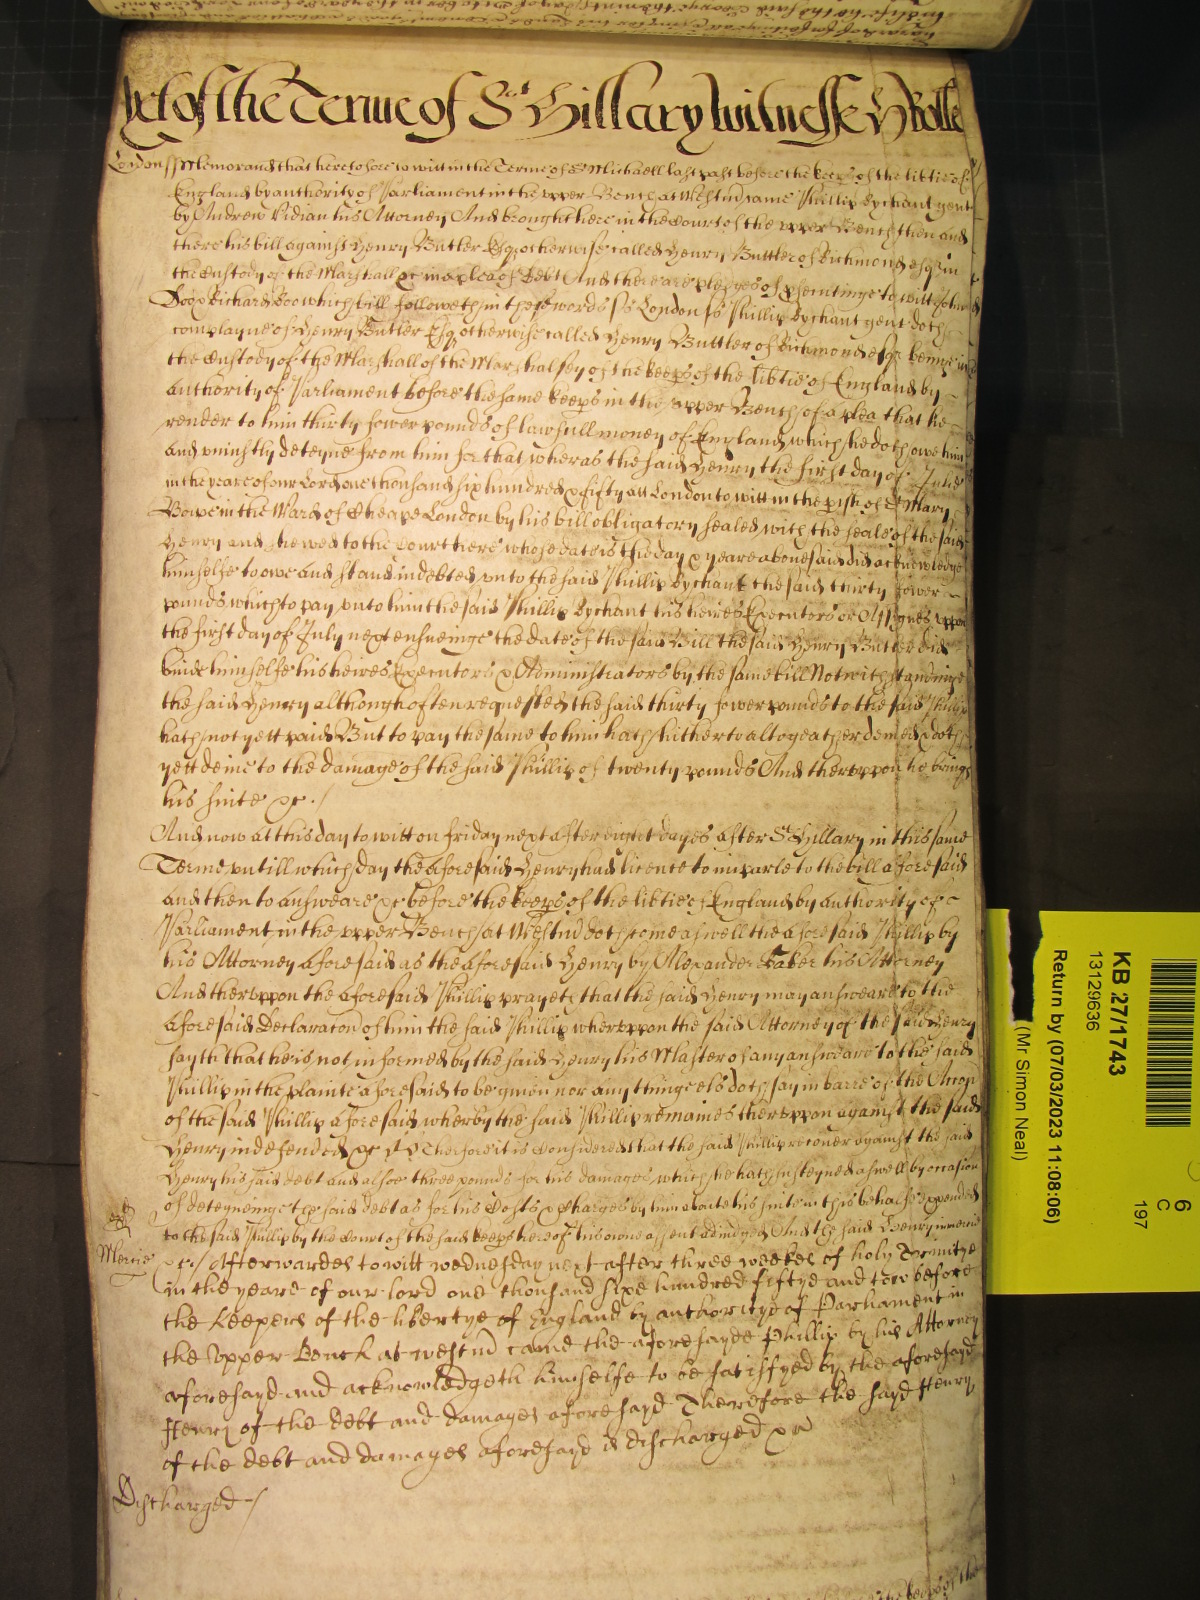 yet of the Terme of St Hillary Witnesse H Rolle
London ss Memorand that heretofore to witt in the Terme of St Michaell last past before the keeps of the libtie of
England by authority of Parliament in the upper Bench at Westm came Phillip Lychant gent
by Andrew Vidian his Attorney And brought here in the Court of the upper Bench then and
there his bill against Henry Butler Esq otherwise called Henry Buttler of Richmond esqr in
the Custody of the Marshall &c in a plea of Debt And there are pledges of prsecutinge to witt John
Doo & Richard Roo which bill followeth in these words ss London ss Phillip Lychant gent doth
complayne of Henry Butler Esq otherwise called Henry Buttler of Richmond esqr beinge in
the Custody of the Marshall of the Marshalsey of the keeps of the libtie of England by
authority of Parliament before the same keeps in the upper Bench of a plea that he
render to him thirty fower pounds of lawfull money of England which he doth owe him
and uniustly deteyne from him for that wheras the said Henry the first day of June
in the yeare of our Lord one thousand six hundred & fifty att London to witt in the pish of St Mary
Bowe in the Ward of Cheape London by his bill obligatory sealed with the seale of the said
Henry and shewed to the Court here whose date is the day & yeare abovesaid did acknowledge
himselfe to owe and stand indebted unto the said Phillip Lychant the said thirty fower
pounds which to pay unto him the said Phillip Lychant his heires Executors or Assignes uppon
the first day of July next ensueinge the date of the said Bill the said Henry Butler did
binde himselfe his heires Executors & Administrators by the same bill Notwithstandinge
the said Henry although often requested the said thirty fower pounds to the said Phillip
hath not yett paid But to pay the same to him hath hitherto altogeather denied & doth
yett denie to the damage of the said Phillip of twenty pounds And theruppon he brings
his suite &c ./
And now at this day to witt on Friday next after eight dayes after St Hyllary in this same
Terme untill which day the aforesaid Henry had licence to imparle to the bill aforesaid
and then to answeare &c before the keeps of the libtie of England by authority of
Parliament in the upper Bench at Westm doth come aswell the aforesaid Phillip by
his Attorney aforesaid as the aforesaid Henry by Alexander Baker his Attorney
And theruppon the aforesaid Phillip prayeth that the said Henry may answeare to the
aforesaid Declaracon of him the said Phillip wheruppon the said Attorney of the said Henry
sayth that he is not informed by the said Henry his Master of any answeare to the said
Phillip in the plainte aforesaid to be given nor any thinge els doth say in barre of the Accon
of the said Phillip aforesaid wherby the said Phillip remaines theruppon against the said
Henry undefended &c Therfore it is Considered that the said Phillip recover against the said
Henry his said debt and alsoe three pounds for his damages which he hath susteyned aswell by occasion
of deteyneinge the said debt as for his Costs & charges by him about his suite in this behalfe expended
to the said Phillip by the Court of the said keeps here of his owne assent adiudged And the said Henry in mercie
Mercie
&c ./ Afterwardes to witt wednesday next after three weekes of holy Trinitye
in the yeare of our lord one thousand sixe hundred fiftye and two before
the keepers of the libertye of England by authoritye of Parliament in
the upper Bench at westm came the aforesayde Phillip by his Attorney
aforesayd and acknowledgeth himselfe to be satisfyed by the aforesayd
Henry of the debt and damages aforesayd Therefore the sayd Henry
of the debt and damages aforesayd is discharged &c
Discharged ./
KB 27/1743
13129636
Return by (07/03/2023 11:08:06)
(Mr Simon Neal)
6
C
197